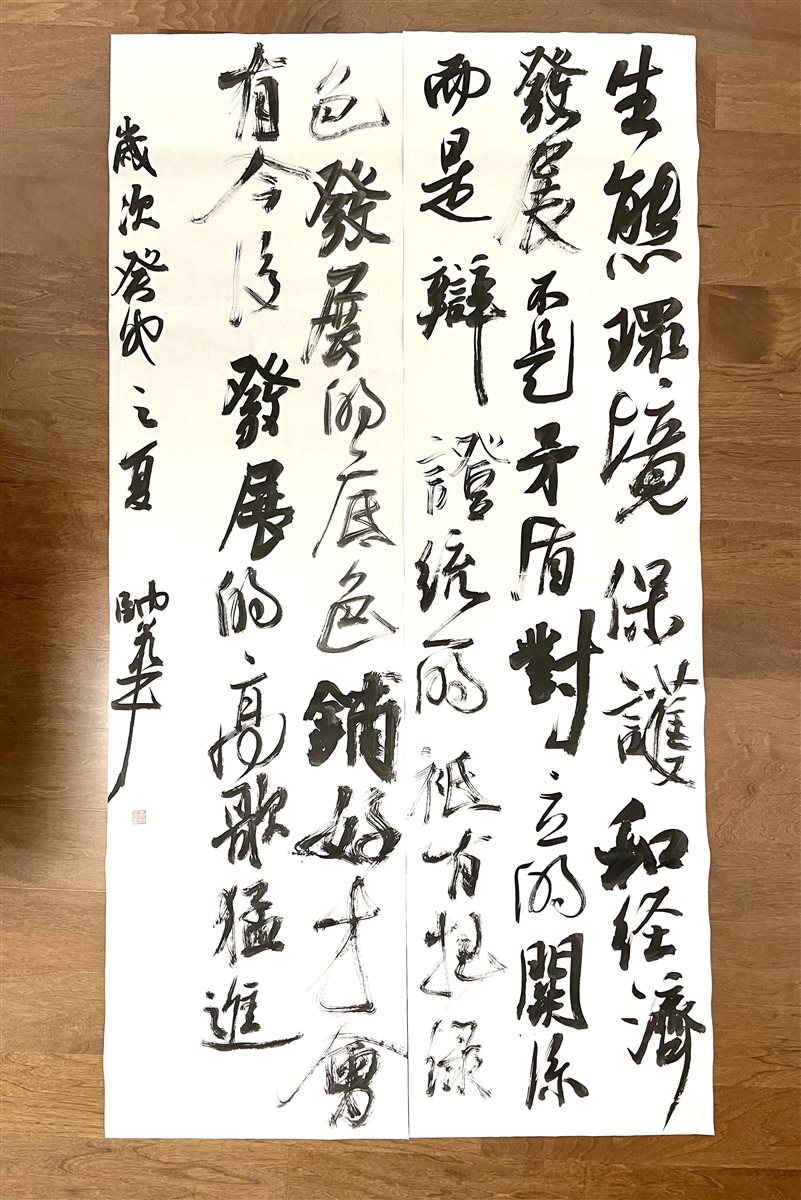 生態環境保護和経濟
發展不是矛盾對立的關係
而是辯證統一的祗有把綠
色發展的底色鋪好才會
有今後發展的高歌猛進
歲次癸卯之夏